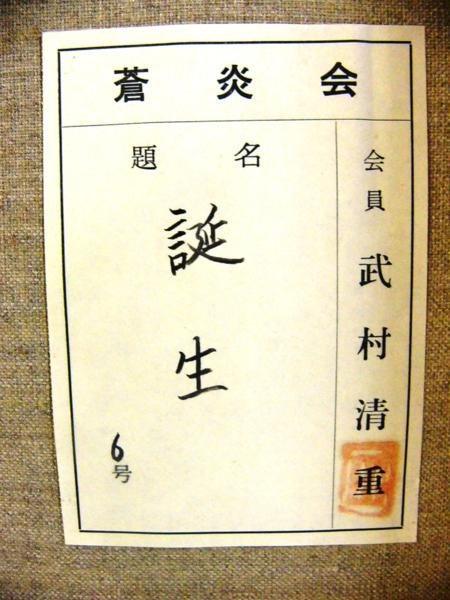 蒼炎会
題名
誕生
6号
会員 武村清重